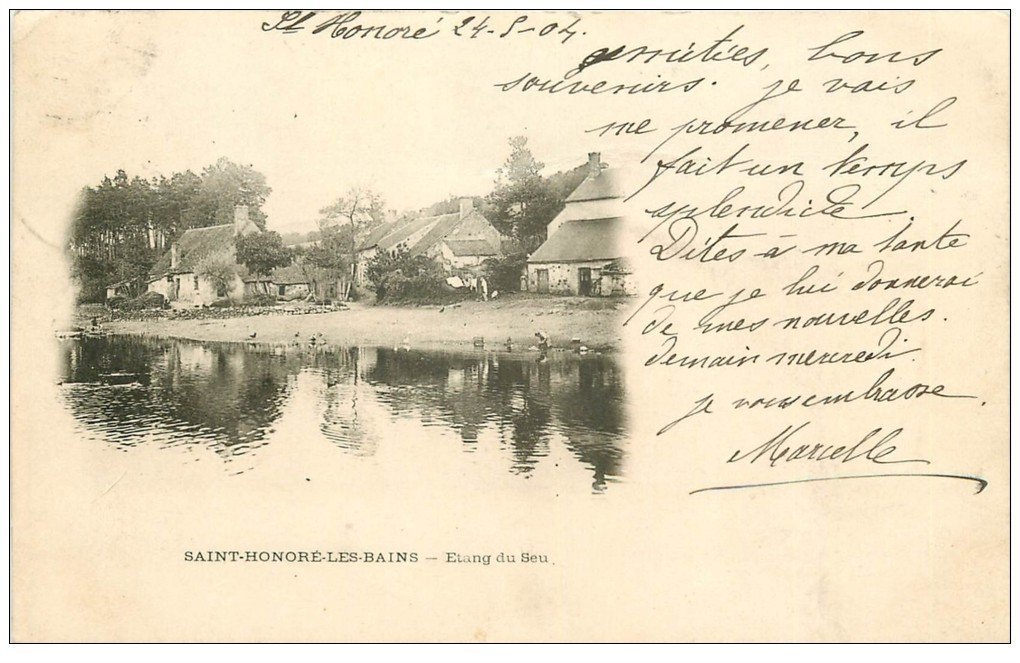 St Honoré 24-5-04.
amitiées, bons
souvenirs. je vais
me promener, il
fait un temps
splendide.
Dites à ma tante
que je lui donnerai
de mes nouvelles.
demain mercredi.
je vous embrasse.
Marcelle
SAINT-HONORÉ-LES-BAINS — Etang du Seu.